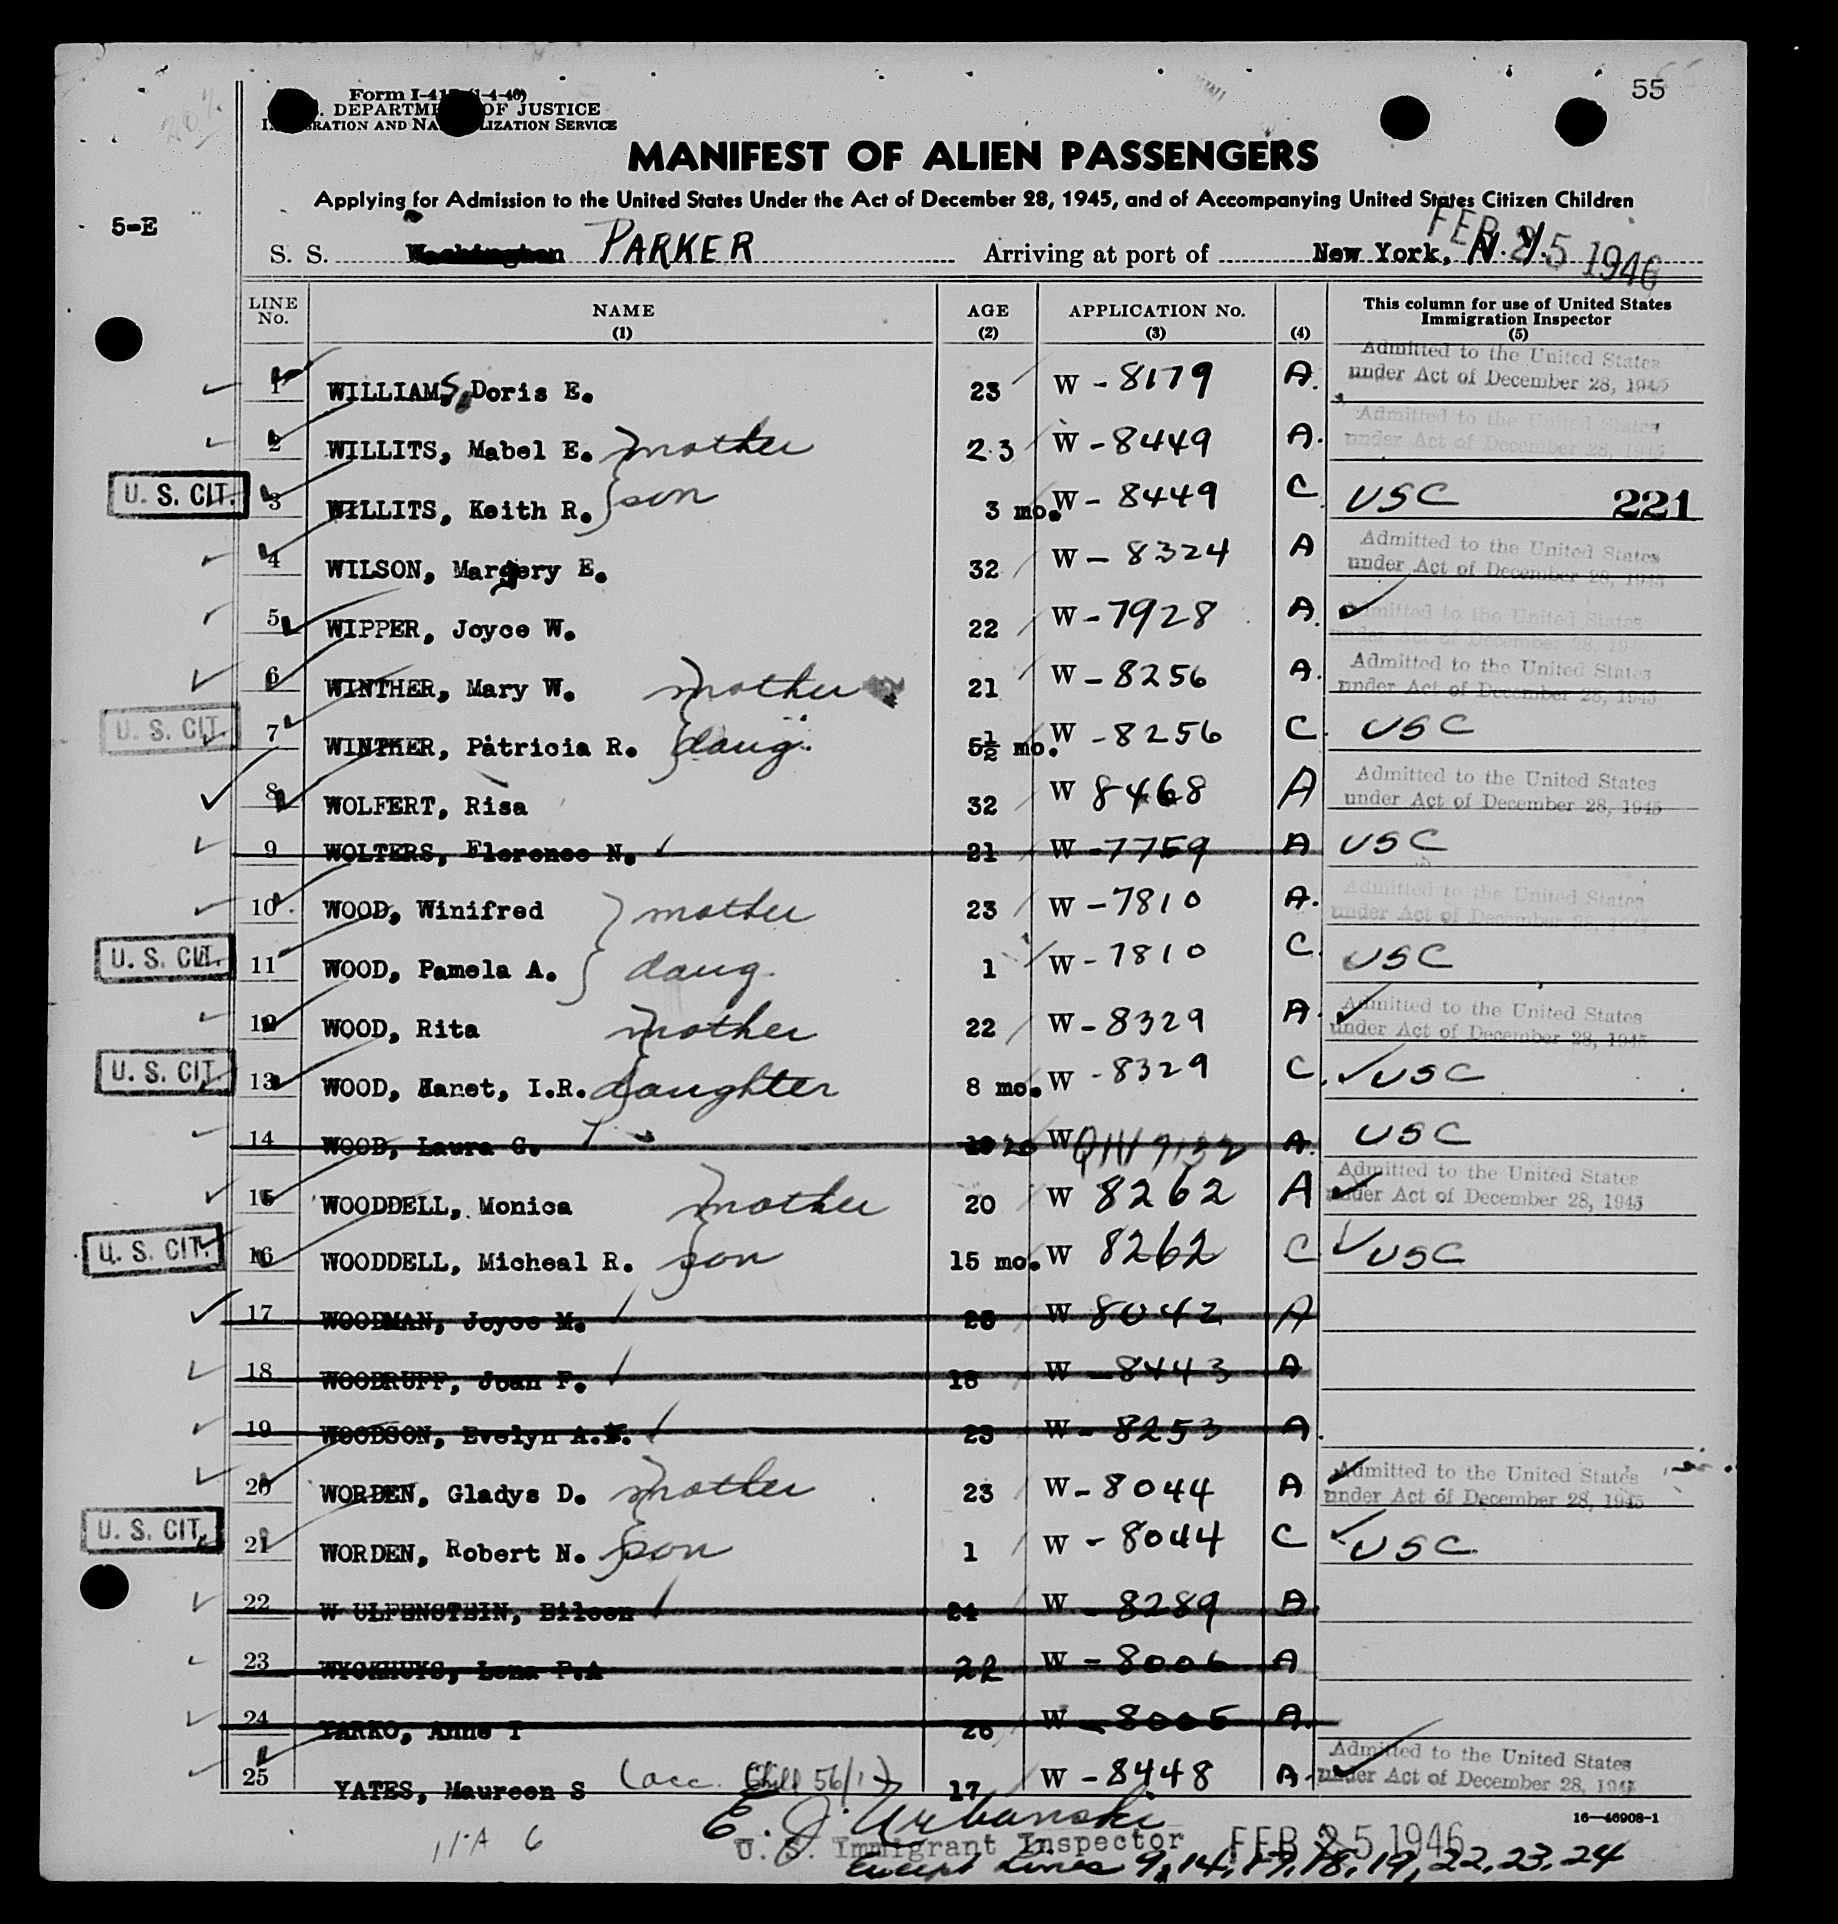 55
Form I-41 (1-4-46)
DEPARTMENT OF JUSTICE
IMMIGRATION AND NATURALIZATION SERVICE
MANIFEST OF ALIEN PASSENGERS
Applying for Admission to the United States Under the Act of December 28, 1945, and of Accompanying United States Citizen Children
5-E
S. S. Washington PARKER Arriving at port of New York, N.Y. FEB 25 1946
LINE No. NAME (1) AGE (2) APPLICATION No. (3) (4) This column for use of United States Immigration Inspector (5)
1 WILLIAMS, Doris E. 23 W - 8179 A. Admitted to the United States under Act of December 28, 1945
2 WILLITS, Mabel E. mother 23 W - 8449 A. Admitted to the United States under Act of December 28, 1945
U. S. CIT. 3 WILLITS, Keith R. son 3 mo. W - 8449 C USC 221
4 WILSON, Margery E. 32 W - 8324 A Admitted to the United States under Act of December 28, 1945
5 WIPPER, Joyce W. 22 W - 7928 A. Admitted to the United States under Act of December 28, 19
6 WINTHER, Mary W. mother 21 W - 8256 A. Admitted to the United States under Act of December 28, 1945
U. S. CIT. 7 WINTHER, Patricia R. daug. 5½ mo. W - 8256 C. USC
8 WOLFERT, Risa 32 W 8468 A Admitted to the United States under Act of December 28, 1945
9 WOLTERS, Florence N. 21 W - 7759 A USC
10 WOOD, Winifred mother 23 W - 7810 A. Admitted to the United States under Act of December 28, 1945
U. S. CIT. 11 WOOD, Pamela A. daug. 1 W - 7810 C. USC
12 WOOD, Rita mother 22 W - 8329 A. Admitted to the United States under Act of December 28, 1945
U. S. CIT. 13 WOOD, Janet, I.R. daughter 8 mo. W - 8329 C. USC
14 WOOD, Laura G. 20 W A. USC
15 WOODDELL, Monica mother 20 W 8262 A Admitted to the United States under Act of December 28, 1945
U. S. CIT. 16 WOODDELL, Micheal R. son 15 mo. W 8262 C USC
17 WOODMAN, Joyce M. 23 W 8042 A
18 WOODRUFF, Joan F. 18 W - 8443 A
19 WOODSON, Evelyn A. 23 W - 8253 A.
20 WORDEN, Gladys D. mother 23 W - 8044 A Admitted to the United States under Act of December 28, 1945
U. S. CIT. 21 WORDEN, Robert N. son 1 W - 8044 C USC
22 W ULFENSTEIN, Eileen 24 W - 8289 A.
23 WYCKHUYS, Lena P.A 22 W - 8006 A
24 YARKO, Anne T 26 W - 8005 A.
25 YATES, Maureen S (acc. Child 56/1) 17 W - 8448 A. Admitted to the United States under Act of December 28, 1945
16—46908-1
11A 6
E. J. Urbanski
U. S. Immigrant Inspector FEB 25 1946
Except Lines 9, 14, 17, 18, 19, 22, 23, 24